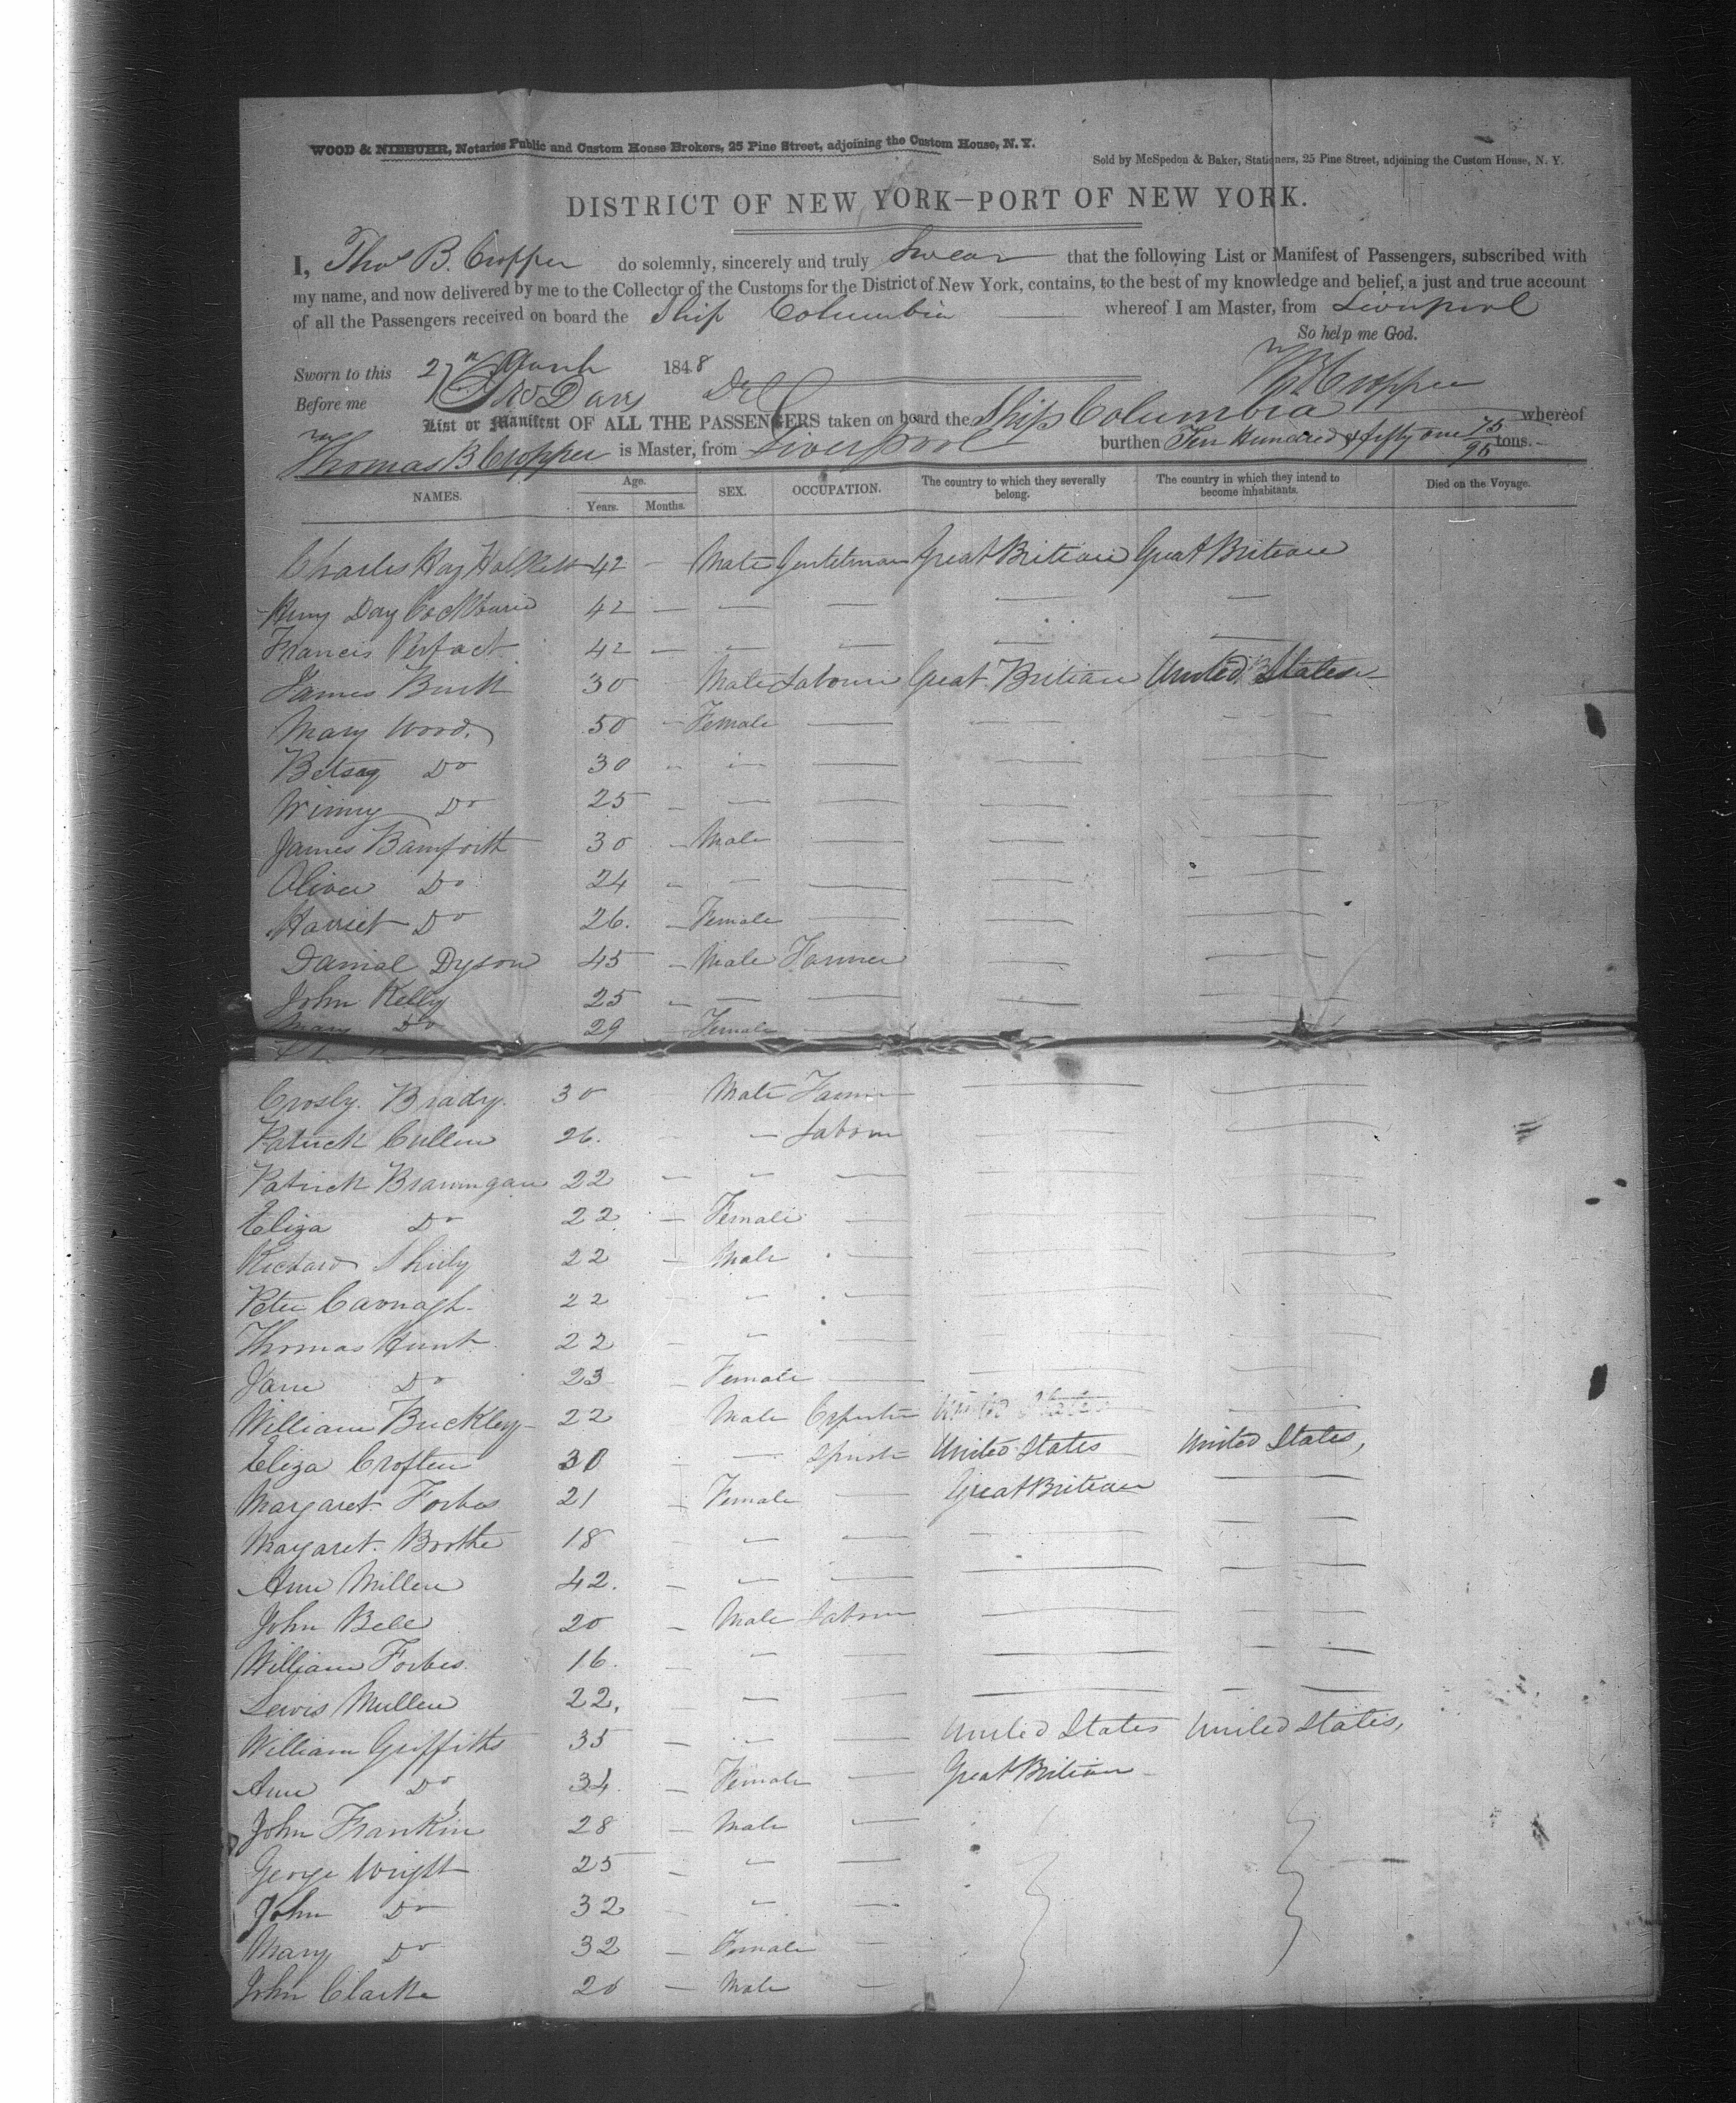 WOOD & NIEBUHR, Notaries Public and Custom House Brokers, 25 Pine Street, adjoining the Custom House, N. Y.
Sold by McSpedon & Baker, Stationers, 25 Pine Street, adjoining the Custom House, N. Y.
DISTRICT OF NEW YORK—PORT OF NEW YORK.
I, Thos B. Cropper do solemnly, sincerely and truly swear that the following List or Manifest of Passengers, subscribed with
my name, and now delivered by me to the Collector of the Customs for the District of New York, contains, to the best of my knowledge and belief, a just and true account
of all the Passengers received on board the Ship Columbia whereof I am Master, from Liverpool
So help me God.
Sworn to this 27 March 1848
Before me
List or Manifest OF ALL THE PASSENGERS taken on board the Ship Columbia whereof
Thomas B Cropper is Master, from Liverpool burthen Ten Hundred & fifty one 75/95 tons.
NAMES. Age. Years. Months. SEX. OCCUPATION. The country to which they severally belong. The country in which they intend to become inhabitants. Died on the Voyage.
Charles Hay 42 — Male Gentelman Great Britian Great Britian
Day 42 — — — — —
Francis Perfact 42 — — — — —
James Burk 30 Male Great Britian United States
Mary Wood. 50 — Female — — —
Betsey Do 30 " — — — —
Winny Do 25 — — — — —
James Bamforth 30 — Male — — —
Oliver Do 24 — — — — —
Harriet Do 26. — Female — — —
Danial Dyson 45 — Male Farmer — —
John Kelly 25 — — — — —
Mary Do 29 Female —
Crosly Brady. 30 Male — —
Patrick Cullen 26. — — — —
Patrick Brannigan 22 — " — — —
Eliza Do 22 — Female — — —
Richard 22 — Male — — —
Peter Cavnagh 22 " — — —
Thomas Hunt 22 — " — — —
Jane Do 23 — Female — — —
William Buckley 22 Male United States —
Eliza Croften 30 — United States United States,
Margaret Forbes 21 — Female — Great Britian —
Margaret Boothe 18 — — — —
Ann Millen 42. — — — — —
John Bell 20 — Male — —
William Forbes 16. — " — — —
Lewis Mullen 22, — — — —
William Griffiths 35 — " — United States United States,
Ann Do 34. — Female — Great Britian
John Frankin 28 — Male —
George Wright 25 — " —
John Do 32 " —
Mary Do 32 — Female —
John Clarke 20 — Male —